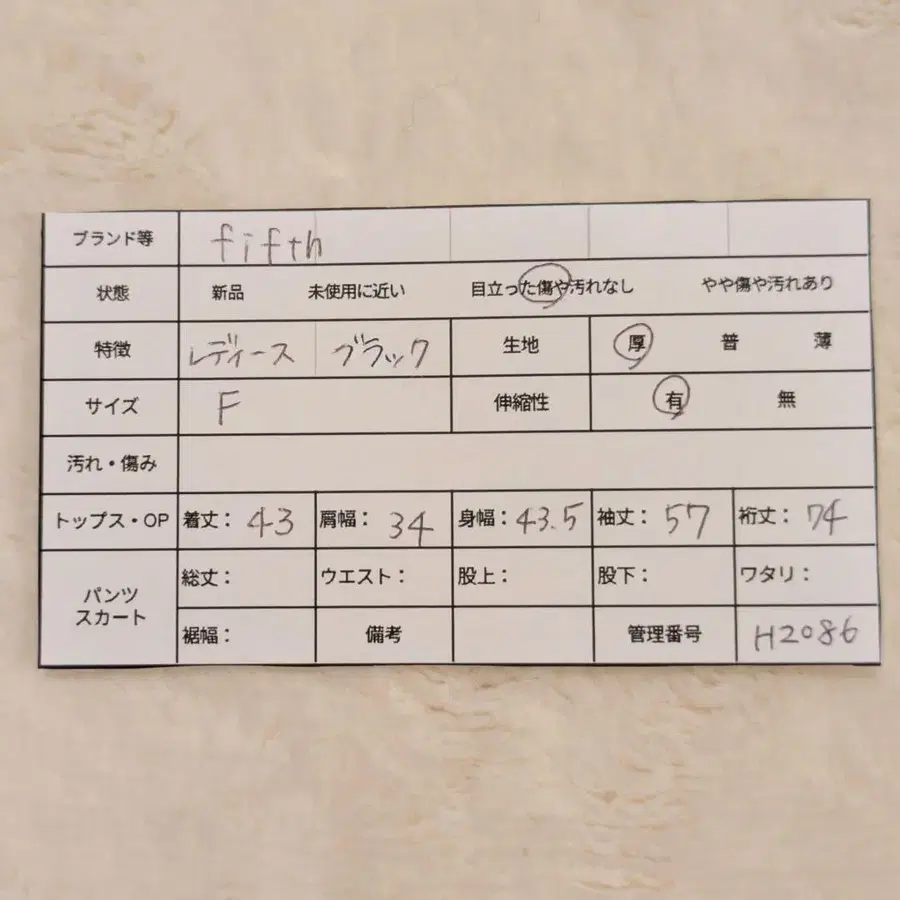 ブランド等 fifth
状態 新品 未使用に近い 目立った傷や汚れなし やや傷や汚れあり
特徴 レディース ブラック 生地 厚 普 薄
サイズ F 伸縮性 有 無
汚れ・傷み
トップス・OP 着丈： 43 肩幅： 34 身幅： 43.5 袖丈： 57 裄丈： 74
パンツ
スカート
総丈： ウエスト： 股上： 股下： ワタリ：
裾幅： 備考 管理番号 H2086